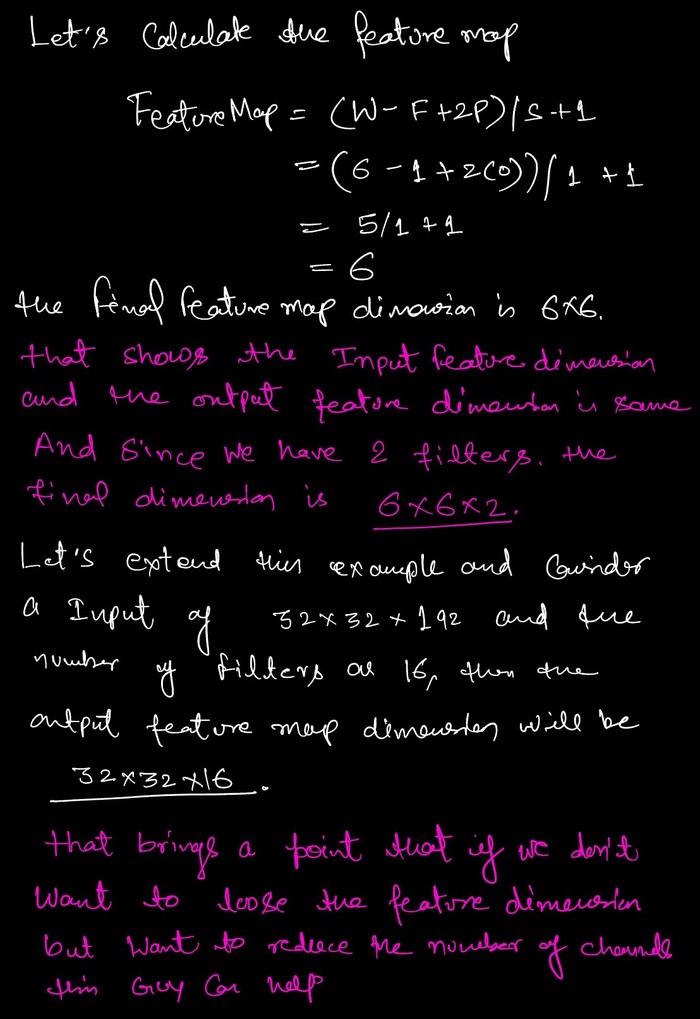 Let's Calculate the feature map
Feature Map = (W - F + 2P) / S + 1
= (6 - 1 + 2(0)) / 1 + 1
= 5/1 + 1
= 6
the final feature map dimension is 6x6.
that shows the Input feature dimension
and the output feature dimension is same
And Since we have 2 filters. the
final dimension is 6x6x2.
Let's extend this example and Consider
a Input of 32x32x192 and the
number of filters as 16, then the
output feature map dimension will be
32x32x16.
that brings a point that if we don't
Want to loose the feature dimension
but Want to reduce the number of channels
this Guy Can help